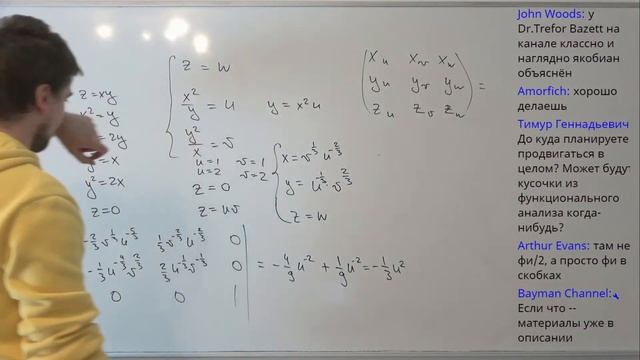 z = xy
x² = y
= 2y
y² = x
y² = 2x
z = 0
z = w
x²/y = u
y = x² u
y²/x = v
u = 1 v = 1
u = 2 v = 2
z = 0
z = uv
x = v^{1/3} u^{-2/3}
y = u^{-1/3} v^{2/3}
z = w
x_u x_v x_w
y_u y_v y_w =
z_u z_v z_w
-2/3 v^{1/3} u^{-5/3} 1/3 v^{-2/3} u^{-2/3} 0
-1/3 u^{-4/3} v^{2/3} 2/3 u^{-1/3} v^{-1/3} 0 = -4/9 u^{-2} + 1/9 u^{-2} = -1/3 u^{2}
0 0 1
John Woods: у
Dr.Trefor Bazett на
канале классно и
наглядно якобиан
объяснён
Amorfich: хорошо
делаешь
Тимур Геннадьевич
До куда планируете
продвигаться в
целом? Может будут
кусочки из
функционального
анализа когда-
нибудь?
Arthur Evans: там не
фи/2, а просто фи в
скобках
Bayman Channel:
Если что --
материалы уже в
описании